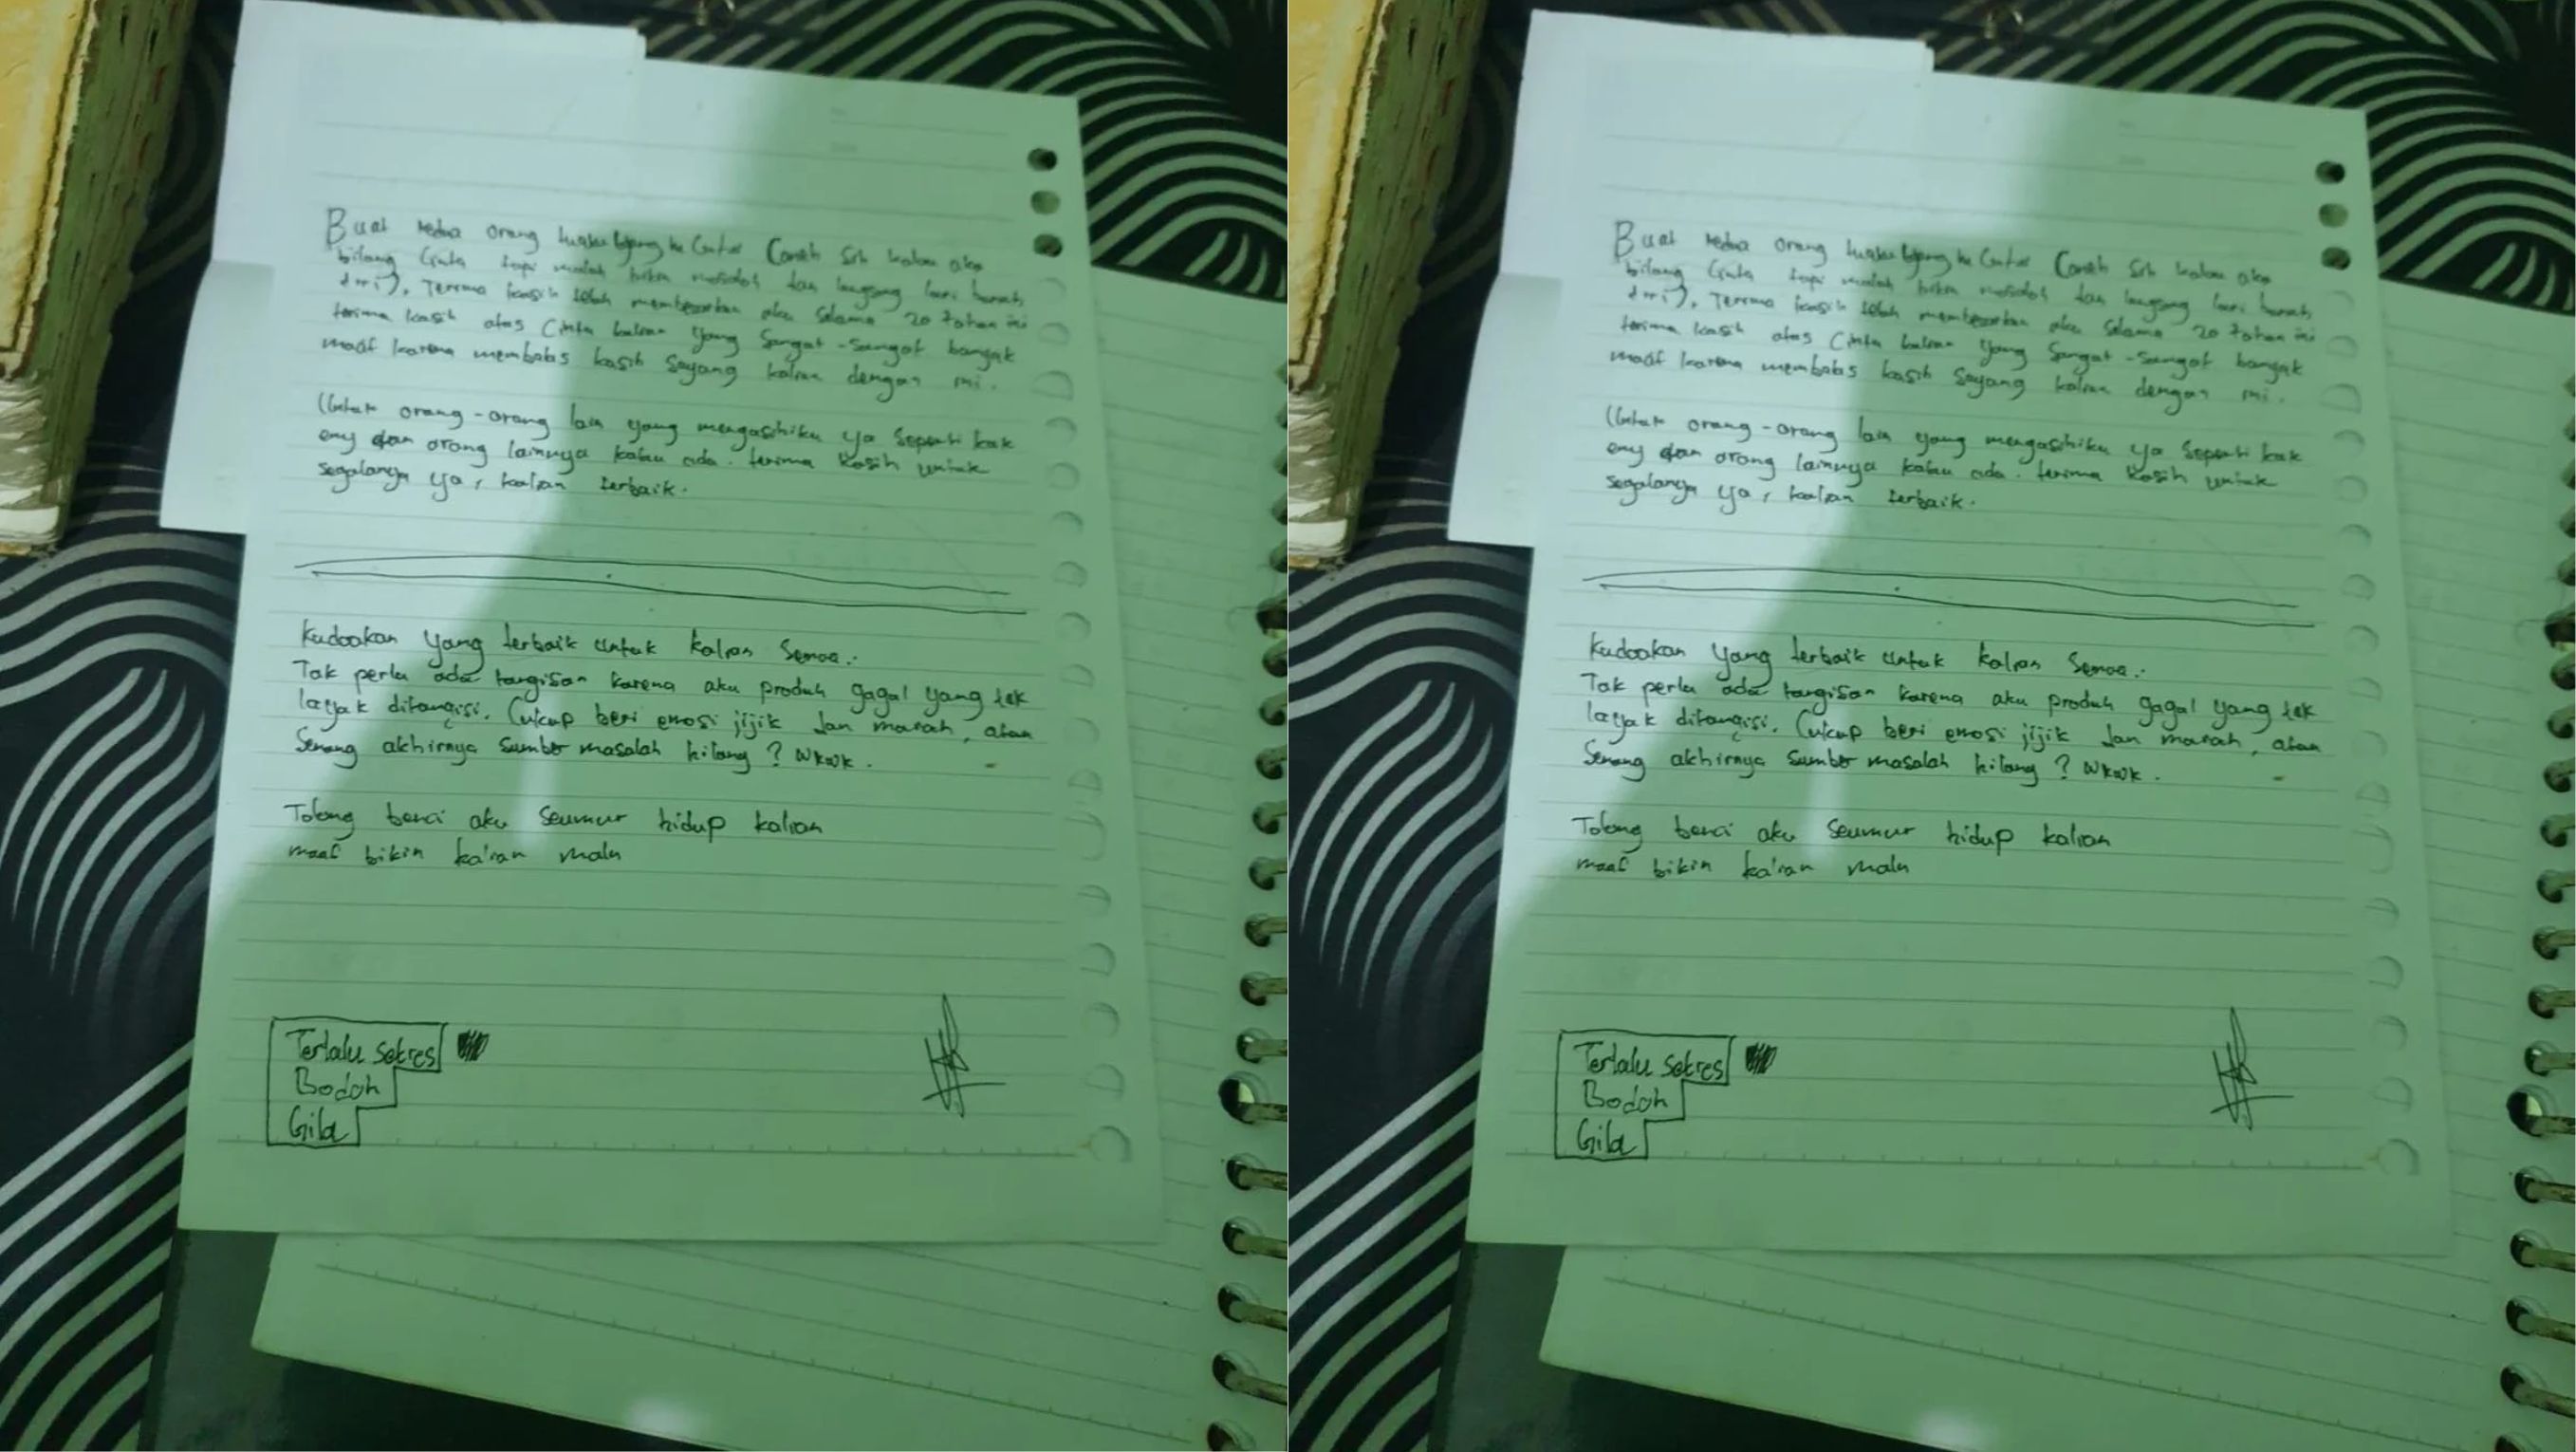 Buat kedua orang tuaku yang ku Cintai (aneh sih kalau aku
bilang Cinta tapi malah bikin masalah dan langsung lari bunuh
diri), Terima kasih telah membesarkan aku selama 20 tahun ini
terima kasih atas Cinta kalian yang Sangat-Sangat banyak
maaf karena membalas kasih Sayang kalian dengan ini.
Untuk orang-orang lain yang mengasihiku ya Seperti kak
eny dan orang lainnya kalau ada. terima kasih untuk
segalanya ya, kalian terbaik.
Kudoakan yang terbaik untuk kalian Semua.
Tak perlu ada tangisan karena aku produk gagal yang tak
layak ditangisi. Cukup beri emosi jijik dan marah, atau
Senang akhirnya sumber masalah hilang? wkwk.
Tolong benci aku seumur hidup kalian
maaf bikin kalian malu
Terlalu setres
Bodoh
Gila
Buat kedua orang tuaku yang ku Cintai (aneh sih kalau aku
bilang Cinta tapi malah bikin masalah dan langsung lari bunuh
diri), Terima kasih telah membesarkan aku selama 20 tahun ini
terima kasih atas Cinta kalian yang Sangat-Sangat banyak
maaf karena membalas kasih Sayang kalian dengan ini.
Untuk orang-orang lain yang mengasihiku ya Seperti kak
eny dan orang lainnya kalau ada. terima kasih untuk
segalanya ya, kalian terbaik.
Kudoakan yang terbaik untuk kalian Semua.
Tak perlu ada tangisan karena aku produk gagal yang tak
layak ditangisi. Cukup beri emosi jijik dan marah, atau
Senang akhirnya sumber masalah hilang? wkwk.
Tolong benci aku seumur hidup kalian
maaf bikin kalian malu
Terlalu setres
Bodoh
Gila